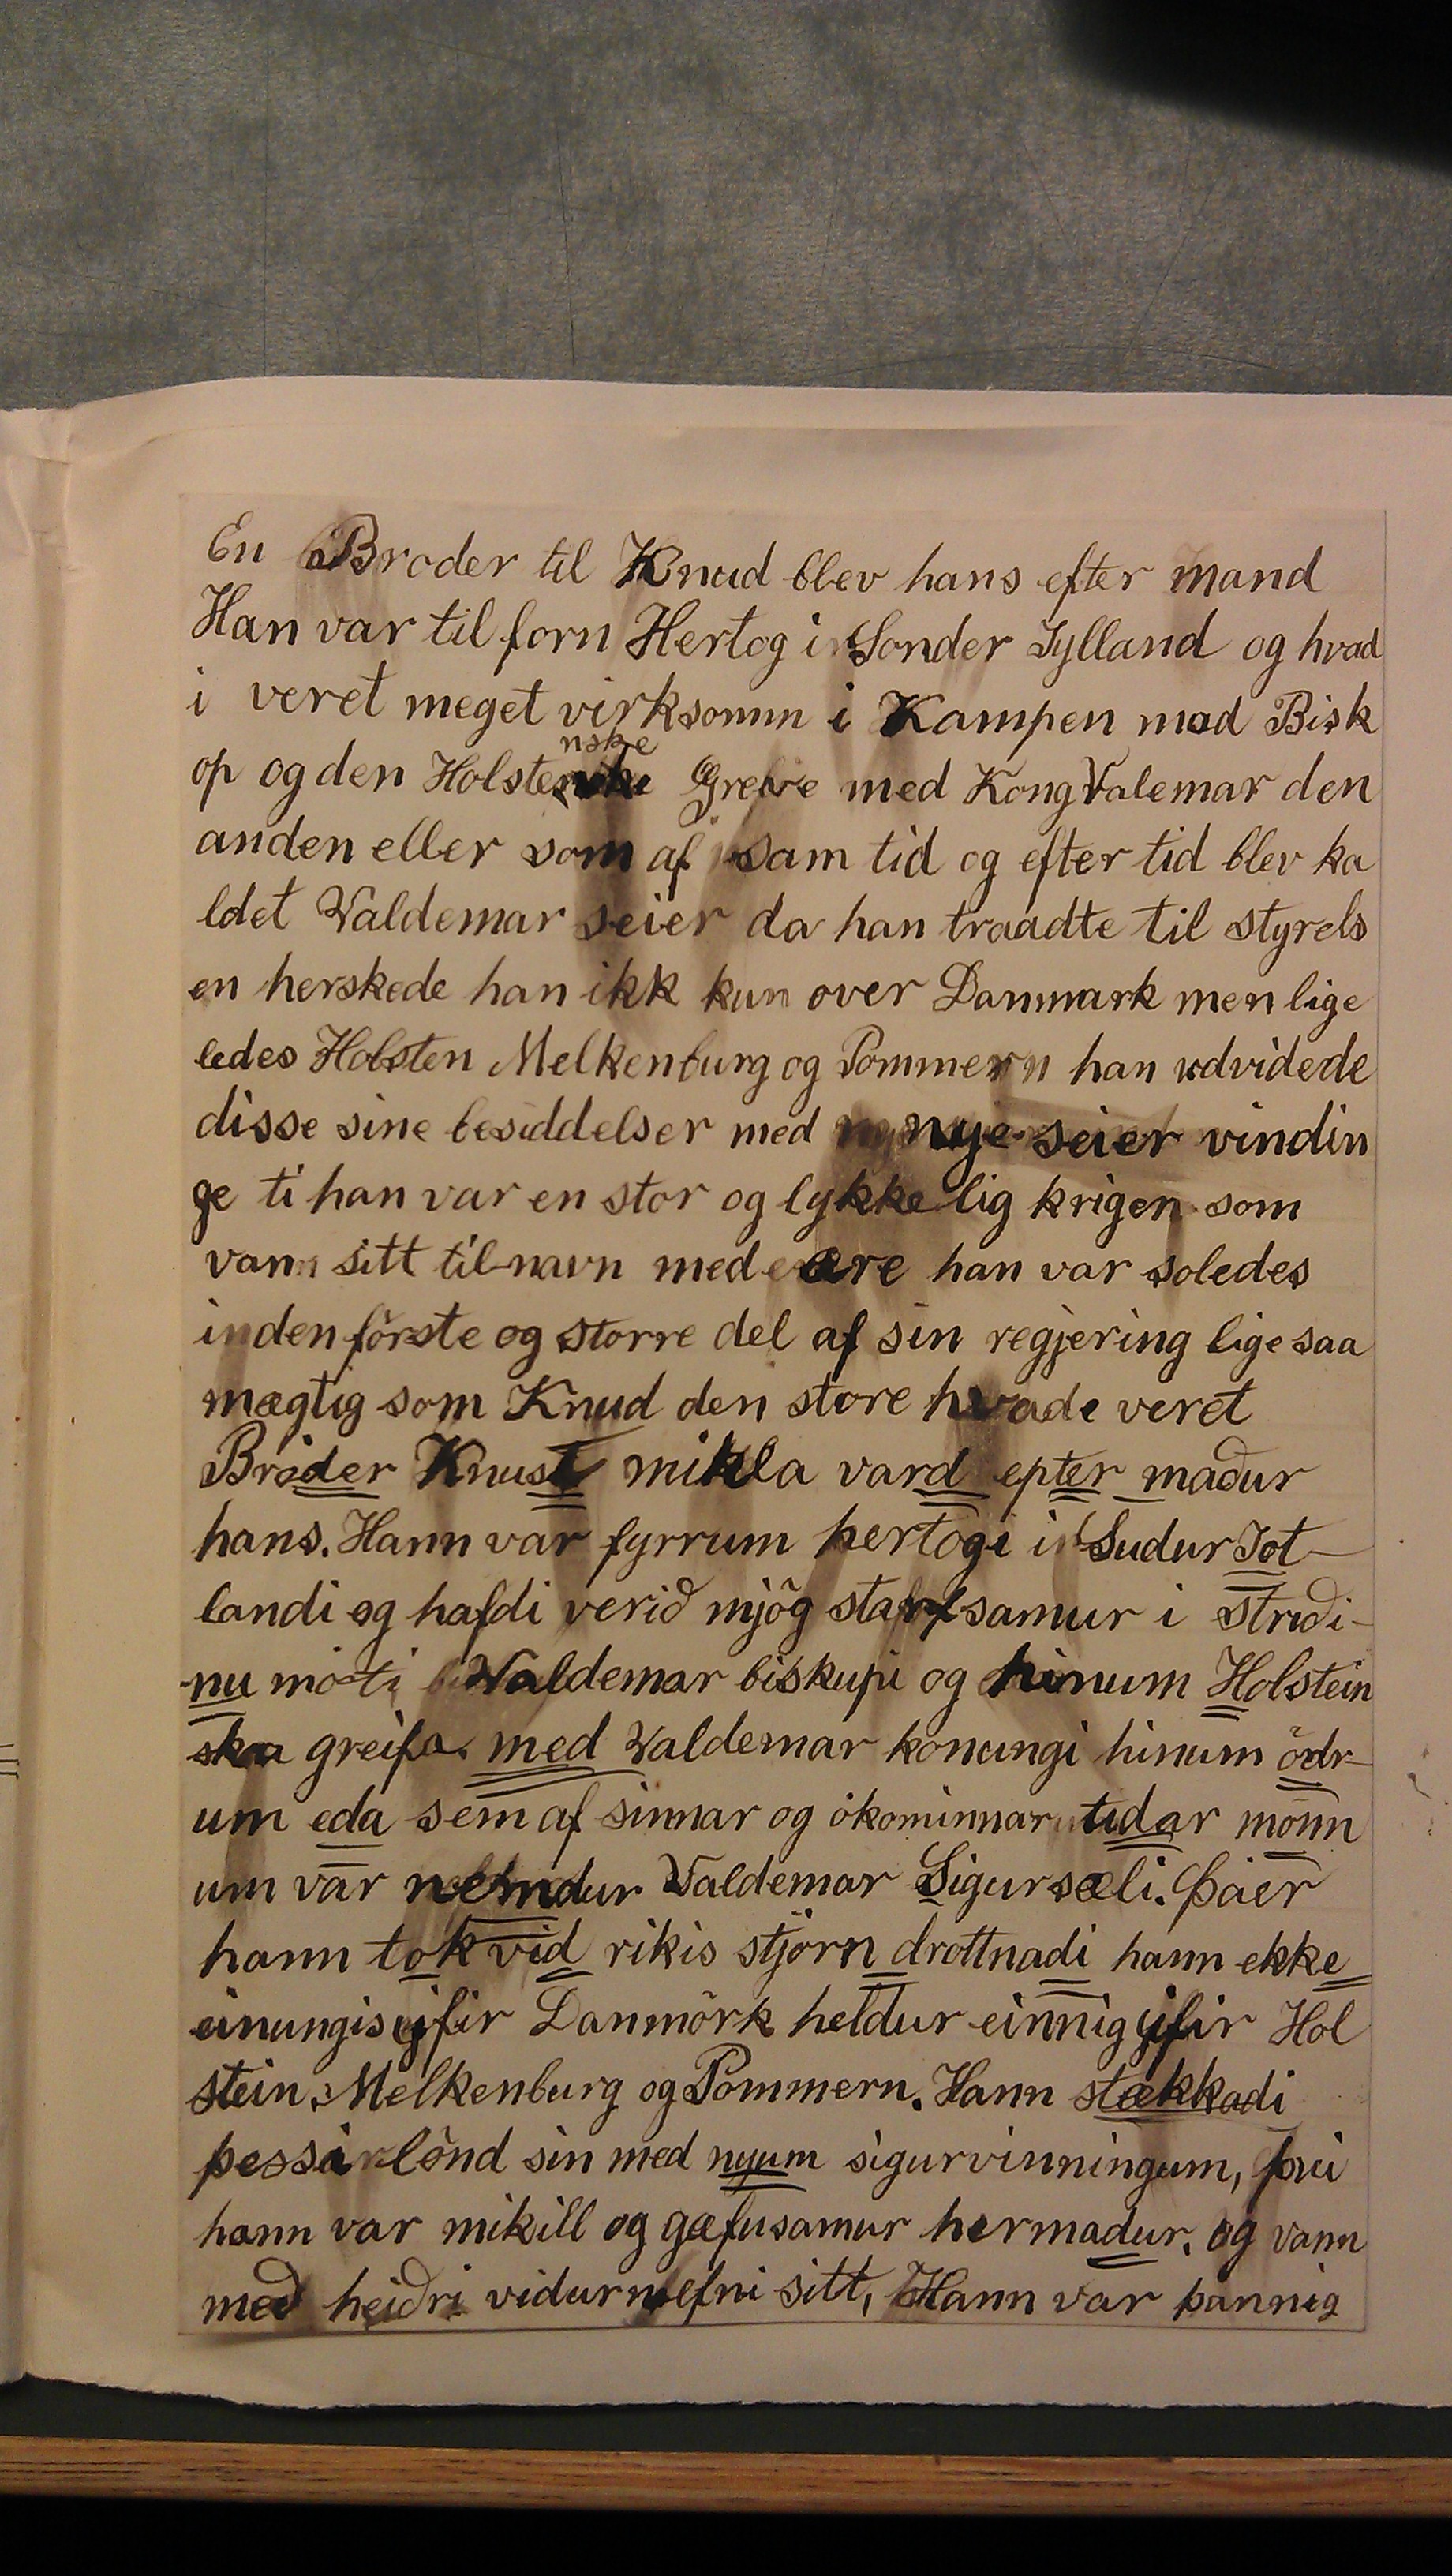 En Broder til Knud blev hans efter mand
Han var til forn Hertog i Sonder Jylland og hvad
i veret meget virksomm i Kampen mod Bisk
op og den Holstenske Greve med Kong Valemar den
anden eller som af sam tid og efter tid blev ka
ldet Valdemar seier da han traadte til styrels
en herskede han ikk kun over Danmark men lige
ledes Holsten Melkenburg og Pommern han udvidede
disse sine besiddelser med nye seier vindin
ge ti han var en stor og lykkelig krigen som
vann sitt tilnavn med ære han var soledes
inden förste og storre del af sin regjering lige saa
mægtig som Knud den store hvade veret
Bróder Knust mikla vard epter maður
hans. Hann var fyrrum hertogi i Sudur Jot
landi og hafdi verið mjög starfsamur i striði-
nu móti Valdemar biskupi og hinum Holstein
ska greifa. med Valdemar konungi hinum ödr-
um eda sem af sinnar og ókominnar tidar mönn
um var nefndur Valdemar Sigursæli. Þáer
hann tok vid rikis stjórn drottnadi hann ekke
einungis yfir Danmörk heldur einnig yfir Hol
stein. Melkenburg og Pommern. Hann stækkadi
þessi lönd sin med nyum sigurvinningum, þvi
hann var mikill og gæfusamur hermadur. og vann
með heiðri vidurnefni sitt, Hann var þannig